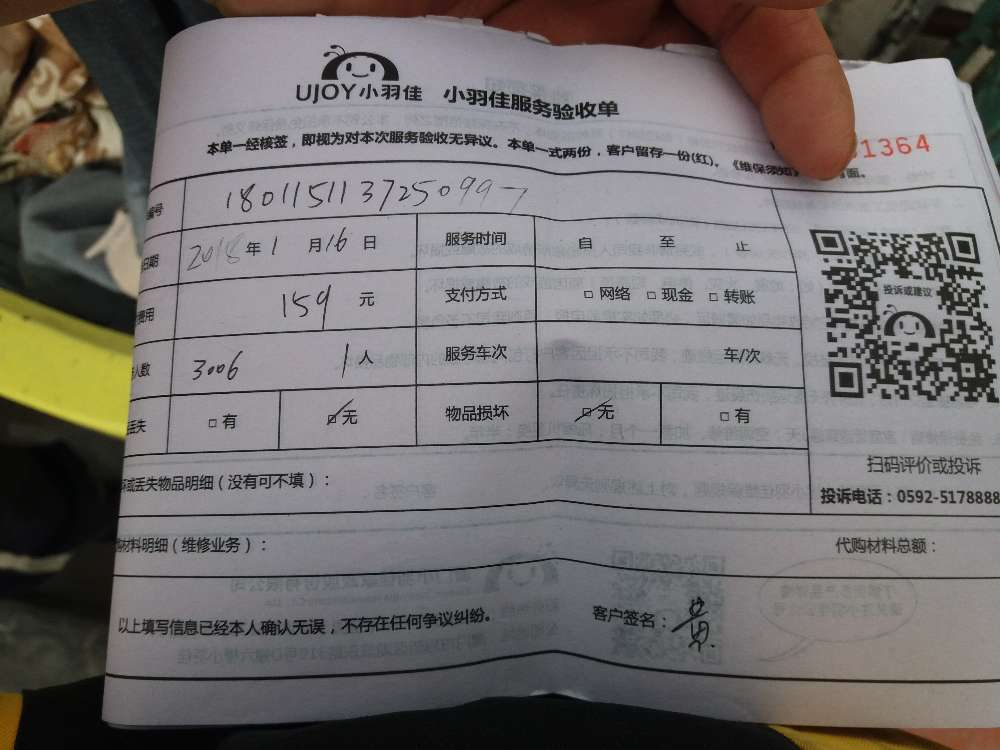 UJOY小羽佳 小羽佳服务验收单
本单一经核签，即视为对本次服务验收无异议。本单一式两份，客户留存一份(红)。《维保须知》 面。
1364
编号 180115113725099
日期 2018年1月16日 服务时间 自 至 止
费用 159元 支付方式 □网络 □现金 □转账
人数 3006 1人 服务车次 车/次
丢失 □有 ☑无 物品损坏 ☑无 □有
投诉或建议
扫码评价或投诉
投诉电话：0592-5178888
坏或丢失物品明细（没有可不填）：
购材料明细（维修业务）： 代购材料总额：
以上填写信息已经本人确认无误，不存在任何争议纠纷。 客户签名：黄